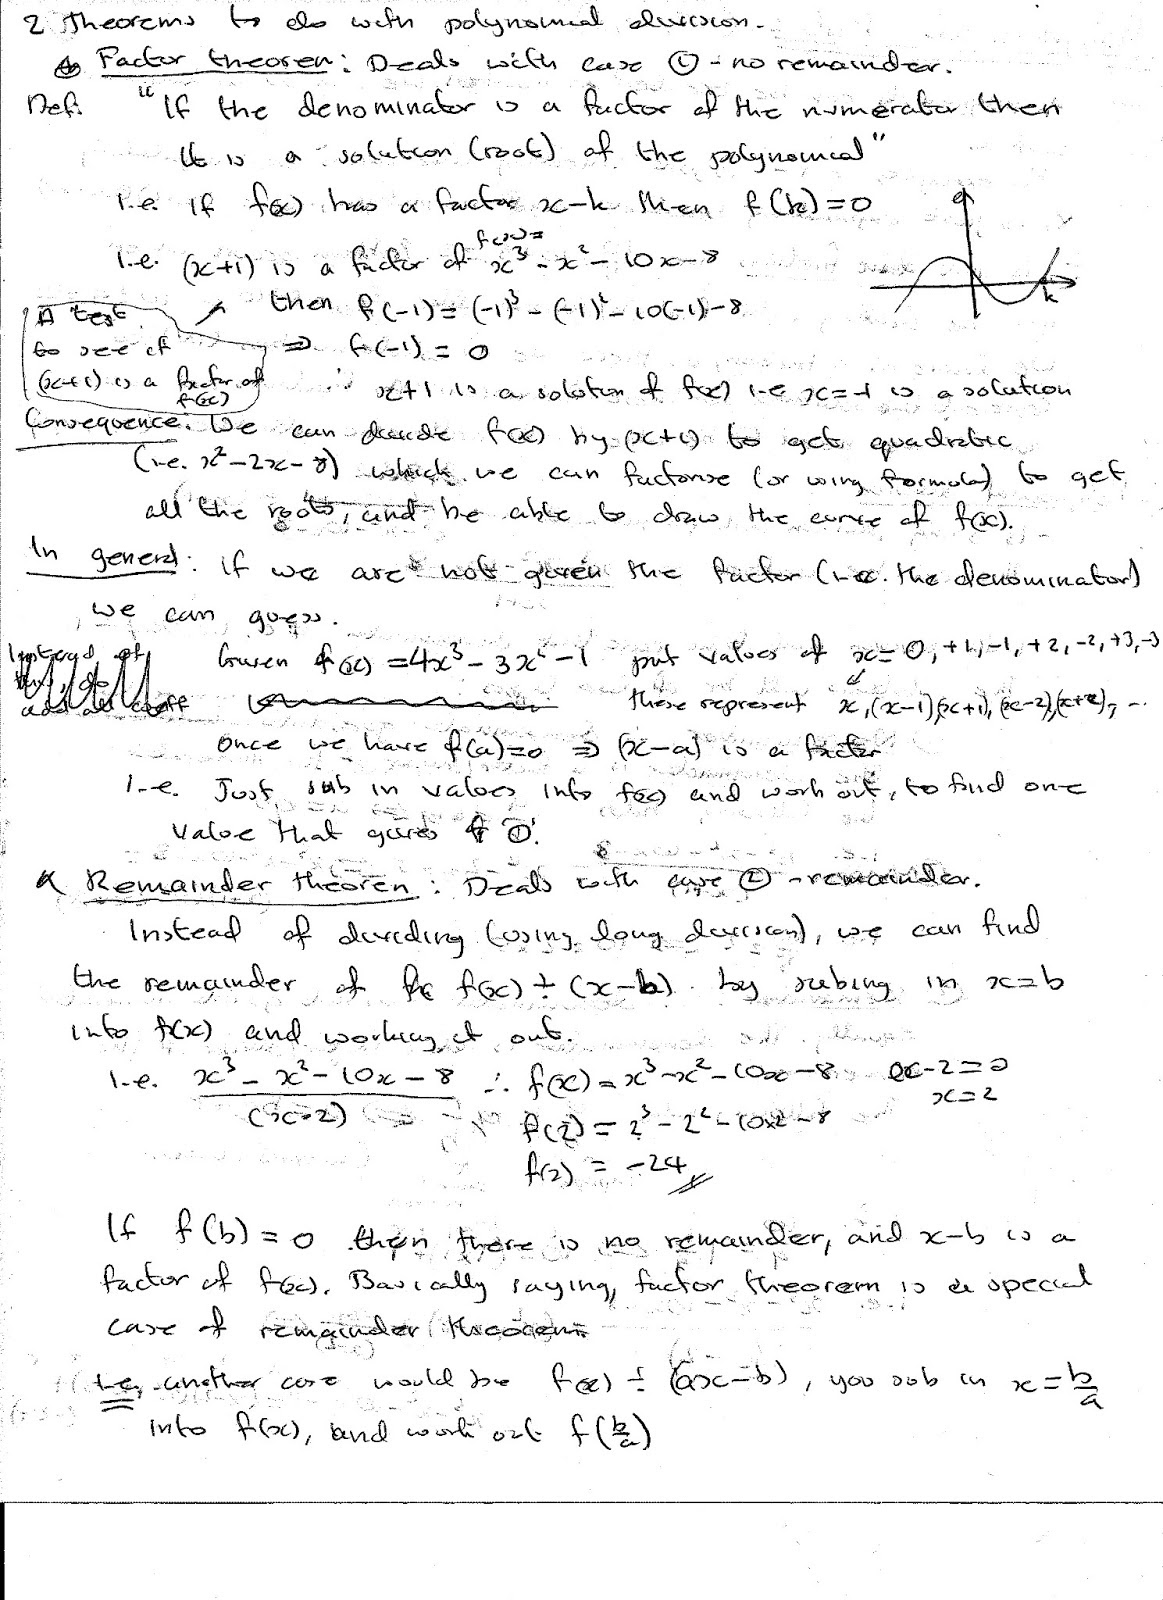 2 Theorems to do with polynomial division.
Factor theorem: Deals with case ① - no remainder.
Def: "If the denominator is a factor of the numerator then
it is a solution (root) of the polynomial"
i.e. if f(x) has a factor x-k then f(k)=0
i.e. (x+1) is a factor of f(x)= x³-x²-10x-8
then f(-1)=(-1)³-(-1)²-10(-1)-8
A test
to see if
(x+1) is a factor of
f(x)
⇒ f(-1)=0
∴ x+1 is a solution of f(x) i.e x=-1 is a solution
k
Consequence: We can divide f(x) by (x+1) to get quadratic
(i.e. x²-2x-8) which we can factorise (or using formula) to get
all the roots, and be able to draw the curve of f(x).
In general: if we are not given the factor (i.e. the denominator)
we can guess.
Instead of
Given f(x)=4x³-3x²-1 put values of x=0,+1,-1,+2,-2,+3,-3
these represent x,(x-1)(x+1),(x-2),(x+2),...
once we have f(a)=0 ⇒ (x-a) is a factor
i.e. Just sub in values into f(x) and work out, to find one
value that gives 0.
Remainder theorem: Deals with case ② - remainder.
Instead of dividing (using long division), we can find
the remainder of f(x) ÷ (x-b) by subing in x=b
into f(x) and working it out.
i.e. x³-x²-10x-8 / (x-2) ∴ f(x)=x³-x²-10x-8 x-2=0
x=2
f(2)=2³-2²-10x2-8
f(2) = -24
If f(b)=0 then there is no remainder, and x-b is a
factor of f(x). Basically saying, factor theorem is a special
case of remainder theorem
i.e. another case would be f(x) ÷ (ax-b), you sub in x=b/a
into f(x), and work out f(b/a)